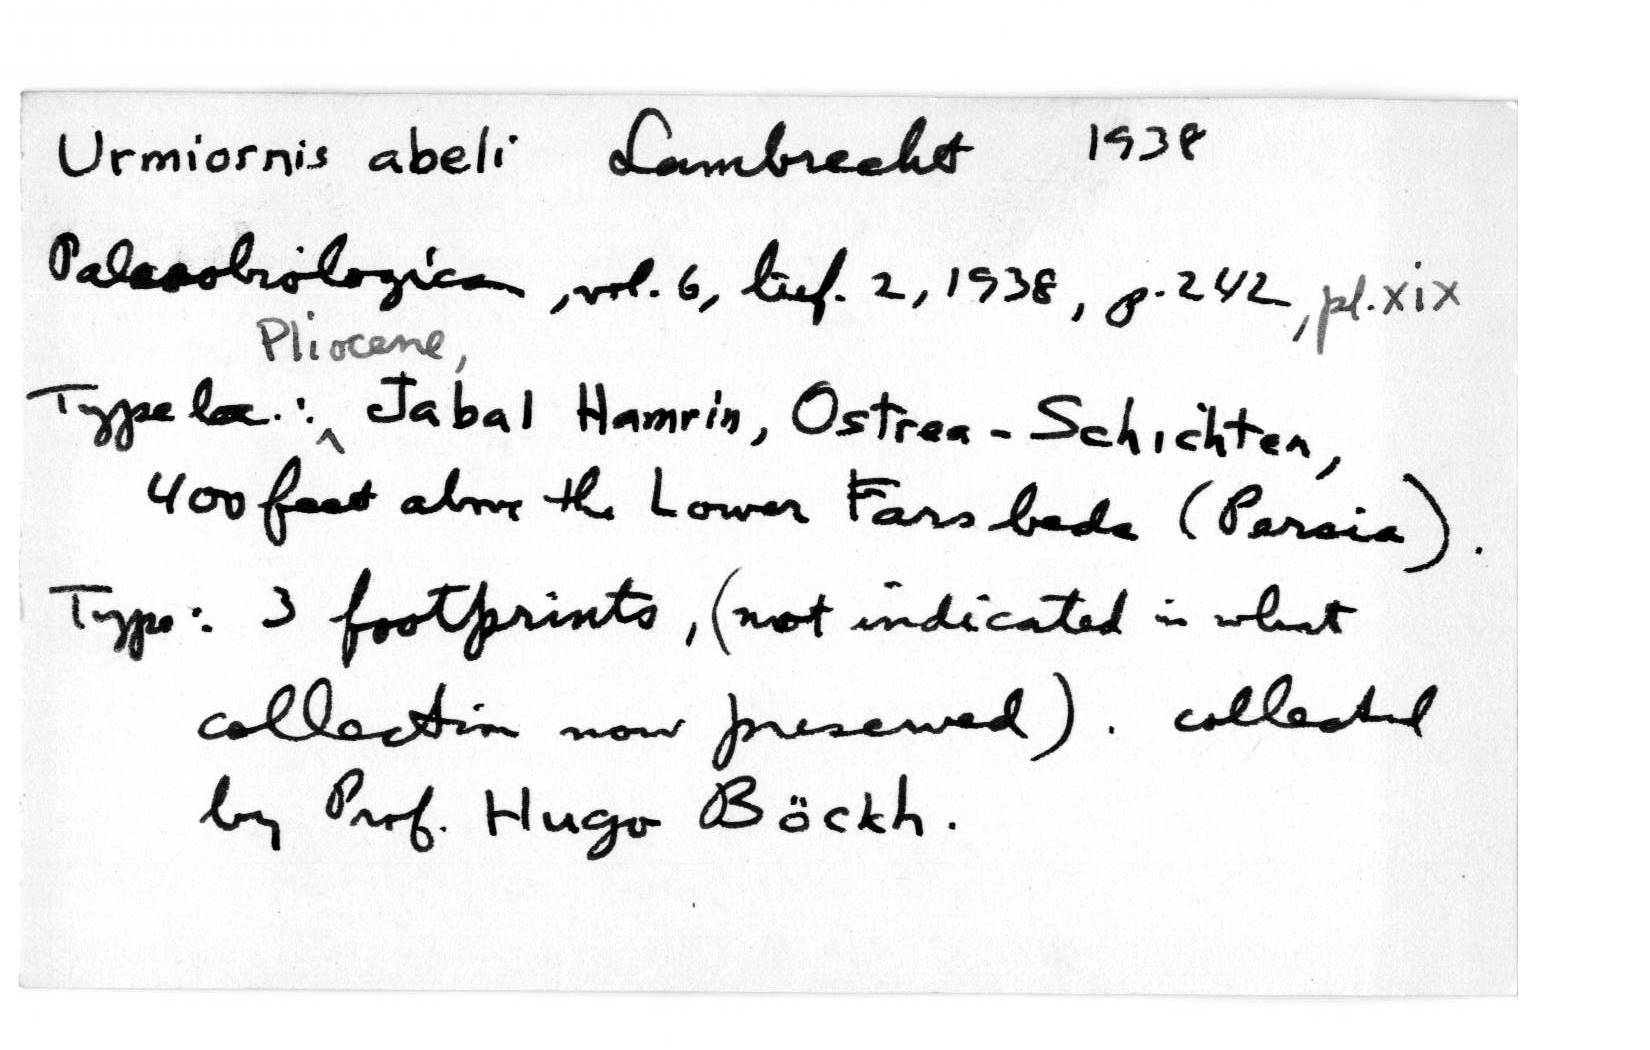 Urmiornis abeli Lambrecht 1938
Palaeobiologica, vol. 6, lief. 2, 1938, p. 242, pl. xix
Pliocene,
Type loc.: ^ Jabal Hamrin, Ostrea-Schichten,
400 feet above the Lower Fars beds (Persia).
Type: 3 footprints, (not indicated in what
collection now preserved). collected
by Prof. Hugo Böckh.